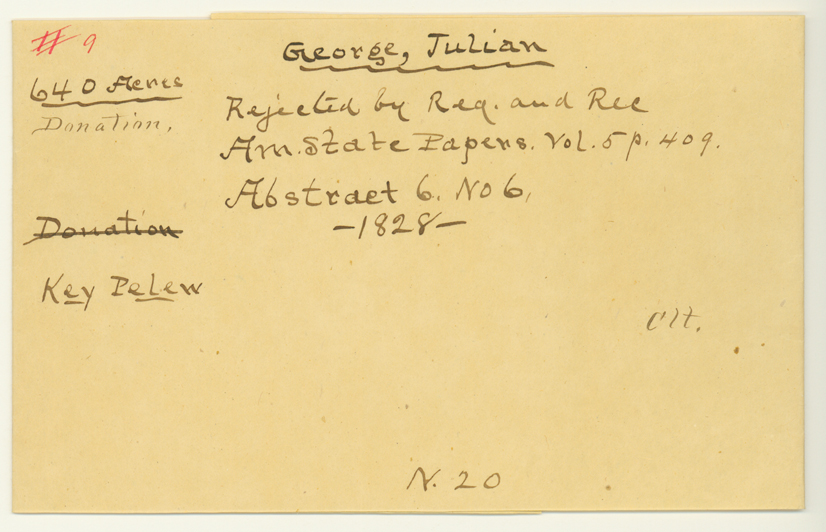 # 9
George, Julian
640 Acres
Donation,
Rejected by Reg. and Rec
Am. State Papers. Vol. 5 p. 409.
Abstract 6. No 6,
Donation
-1828-
Key Pelew
N. 20